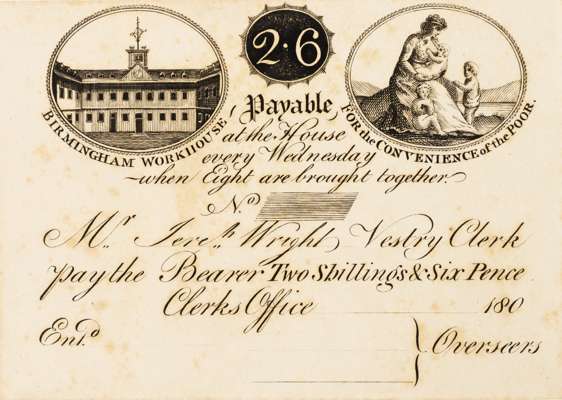 2·6
BIRMINGHAM WORKHOUSE
FOR the CONVENIENCE of the POOR.
Payable
at the House
every Wednesday
when Eight are brought together.
No.
Mr. Jereh. Wright, Vestry Clerk
pay the Bearer Two Shillings & Six Pence
Clerks Office 180
Entd.
Overseers